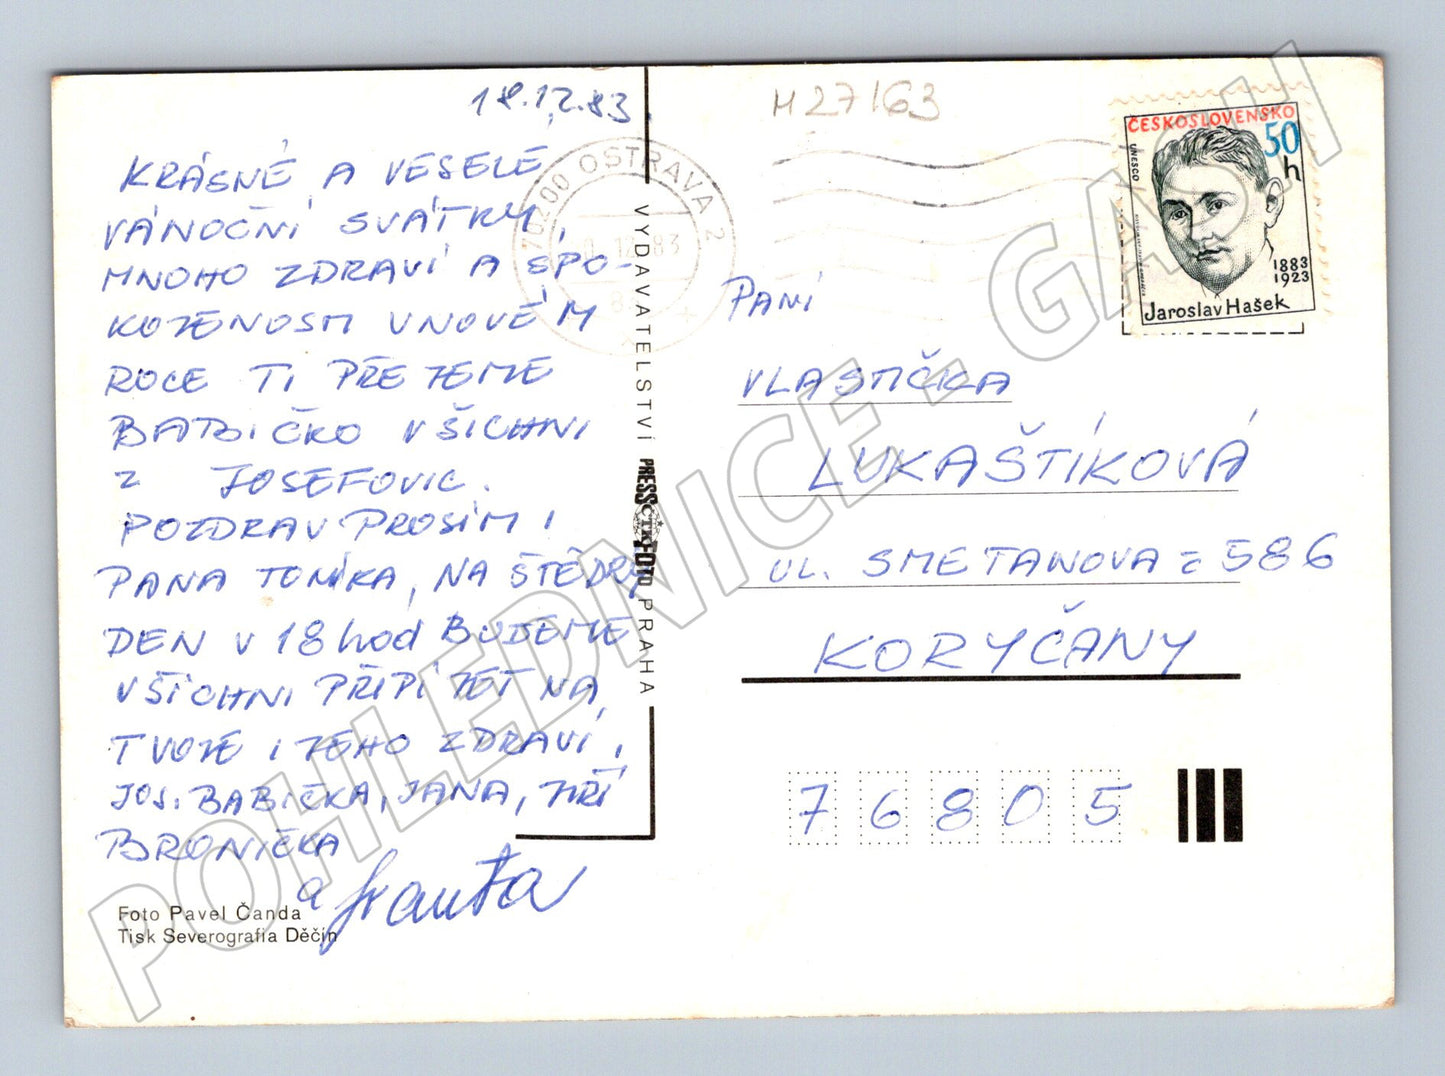 18.12.83
KRÁSNÉ A VESELÉ
VÁNOČNÍ SVÁTKY,
MNOHO ZDRAVÍ A SPO-
KOJENOSTI V NOVÉM
ROCE TI PŘEJEME
BABIČKO VŠICHNI
Z JOSEFOVIC.
POZDRAV PROSÍM I
PANA TONÍKA, NA ŠTĚDRÝ
DEN V 18 hod BUDEME
VŠICHNI PŘIPÍJET NA
TVOJE I JEHO ZDRAVÍ,
JOS. BABIČKA, JANA, JIŘÍ
BRONIČKA
a Franta
Foto Pavel Čanda
Tisk Severografia Děčín
VYDAVATELSTVÍ PRESSFOTO PRAHA
ČTK
M27163
702 00 OSTRAVA 2
12.83
ČESKOSLOVENSKO
50 h
UNESCO
1883
1923
Jaroslav Hašek
PANÍ
VLASTIČKA
LUKAŠTÍKOVÁ
UL. SMETANOVA č 586
KORYČANY
76805
POHLEDNICE - GASH